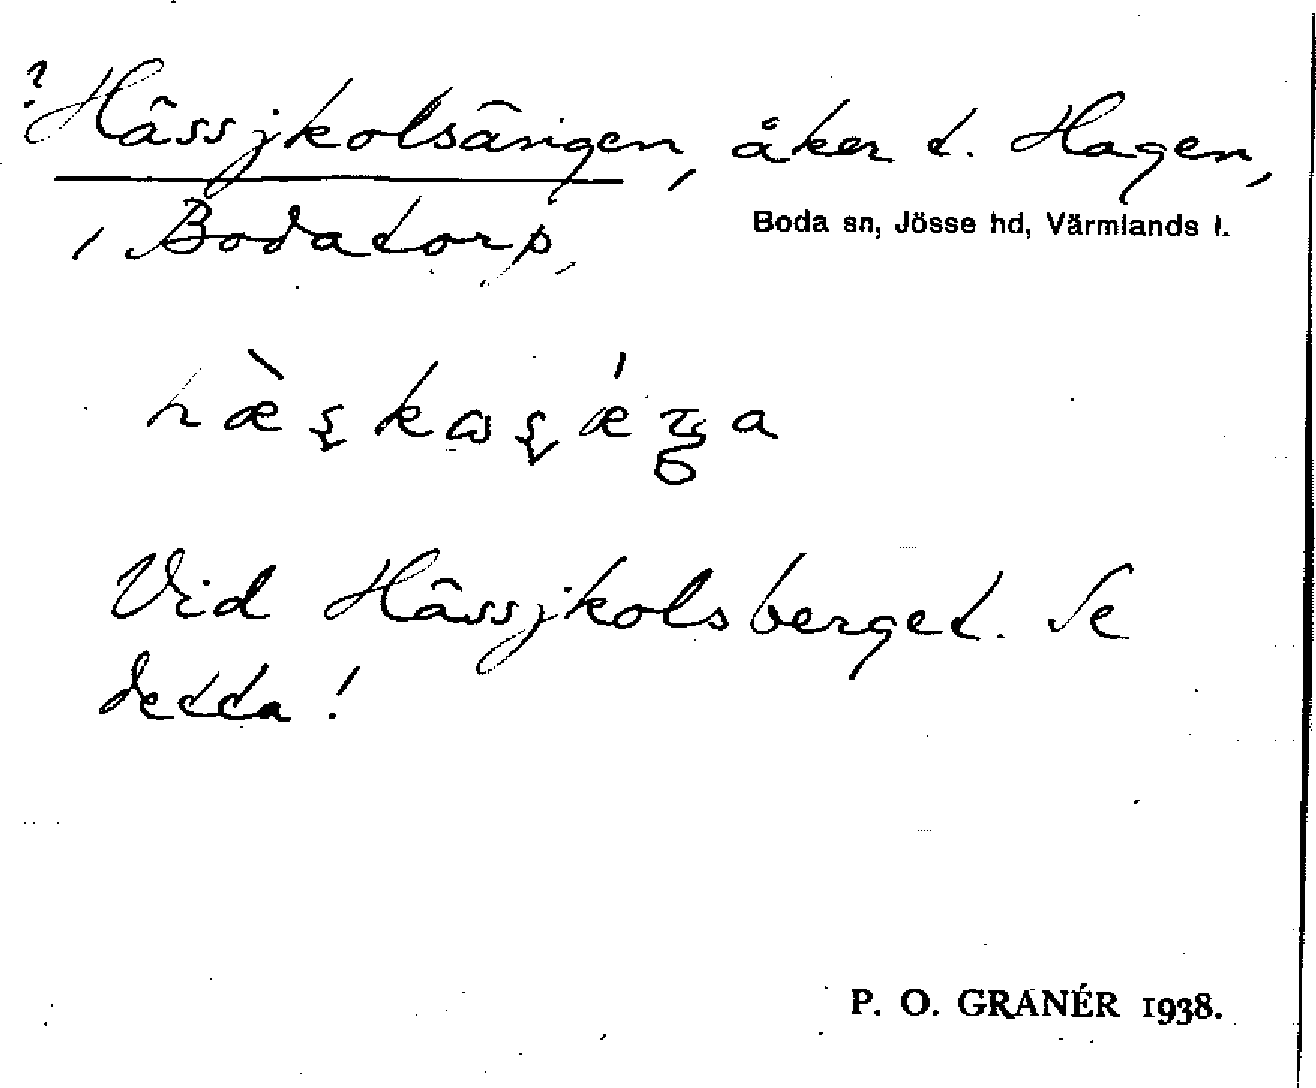 ? Hässjkolsängen, åker t. Hagen,
, Bodatorp,
Boda sn, Jösse hd, Värmlands l.
Vid Hässjkolsberget. Se
detta!
P. O. GRANÉR 1938.